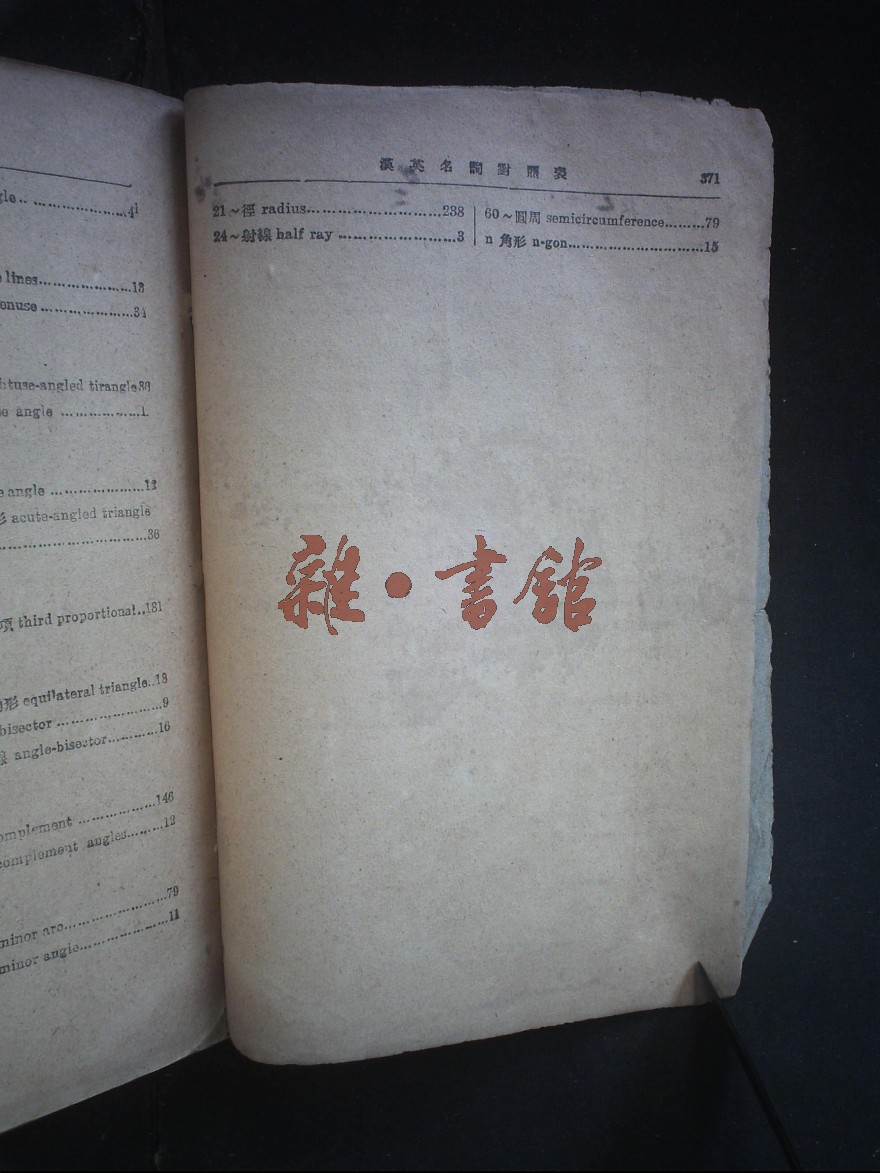 gle.. ....................41
lines....................13
enuse ....................34
btuse-angled tirangle80
e angle .................1
e angle ....................12
形 acute-angled triangle
................................36
項 third proportional..181
形 equilateral triangle..13
bisector ......................9
angle-bisector...........16
omplement .................146
complement angles........12
minor arc......................79
minor angle...................11
漢英名詞對照表 371
21~徑 radius............................238
24~射線 half ray .........................3
60~圓周 semicircumference.........79
n 角形 n-gon..............................15
雜·書館